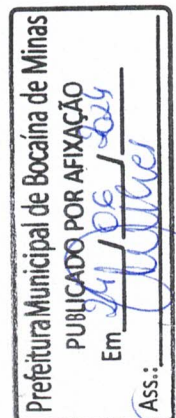 Prefeitura Municipal de Bocaina de Minas
PUBLICADO POR AFIXAÇÃO
Em 24 / 06 / 2024
Ass.: